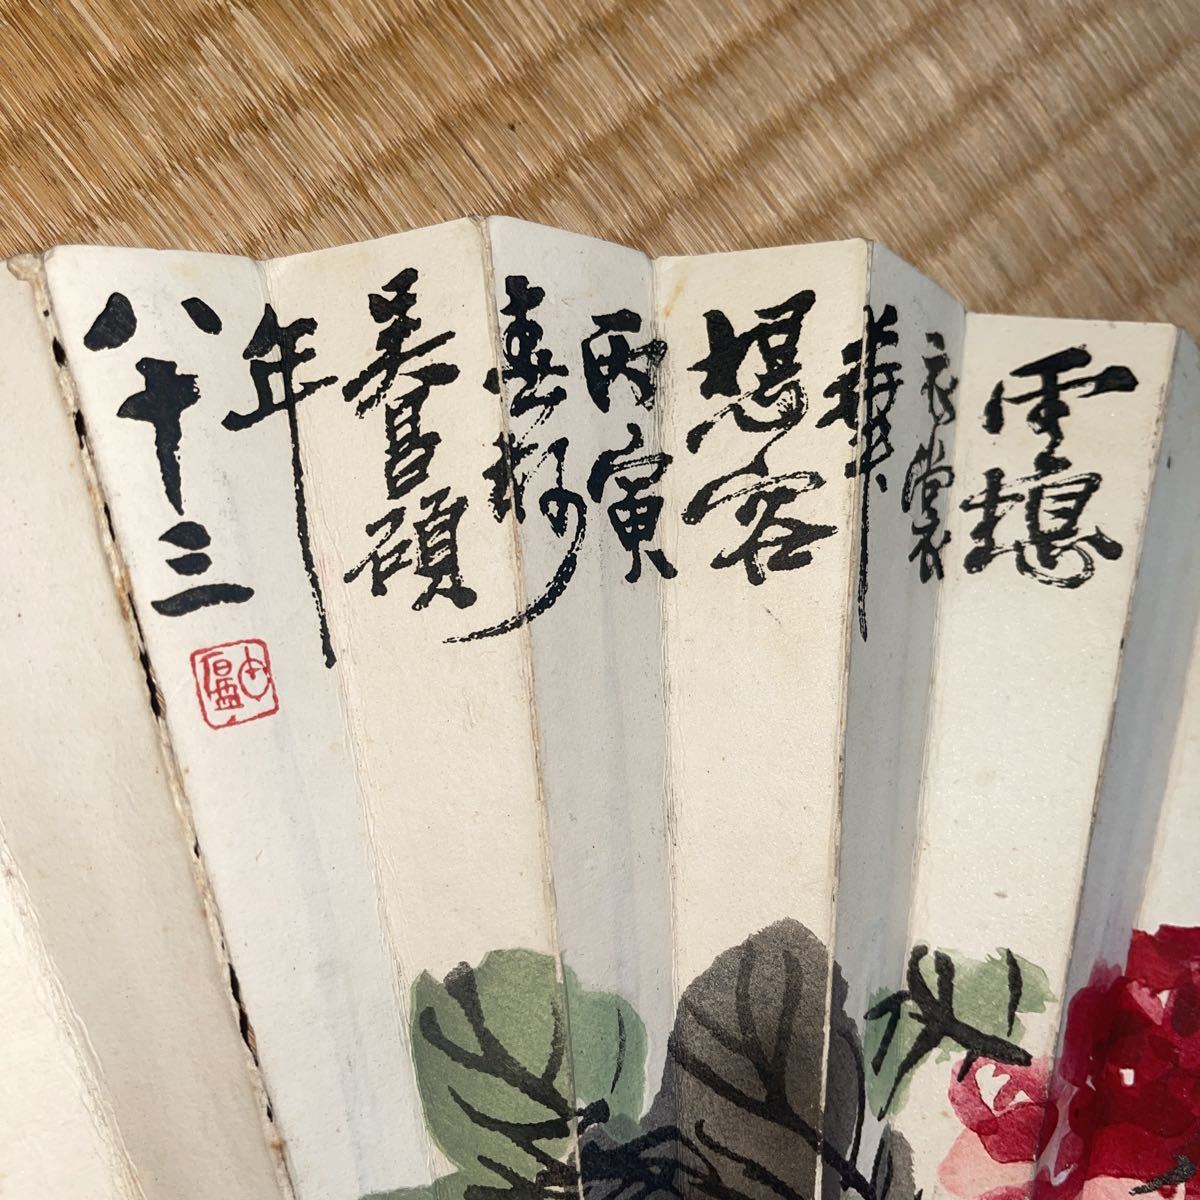 雲想
衣裳
華
想容
丙寅
春杪
吳昌碩
年
八十三